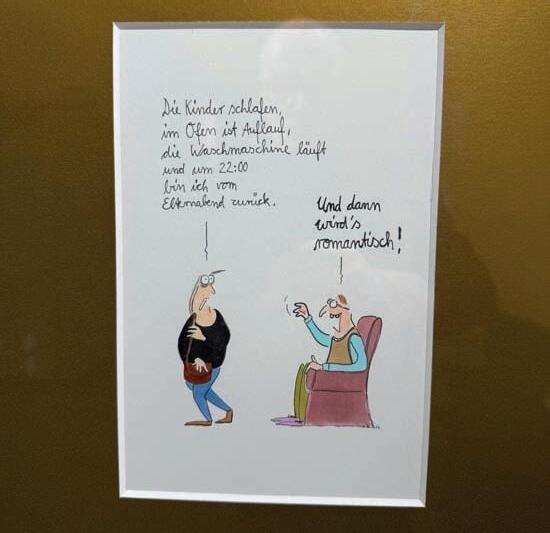 Die Kinder schlafen,
im Ofen ist Auflauf,
die Waschmaschine läuft
und um 22:00
bin ich vom
Elternabend zurück.
Und dann
wird's
romantisch!